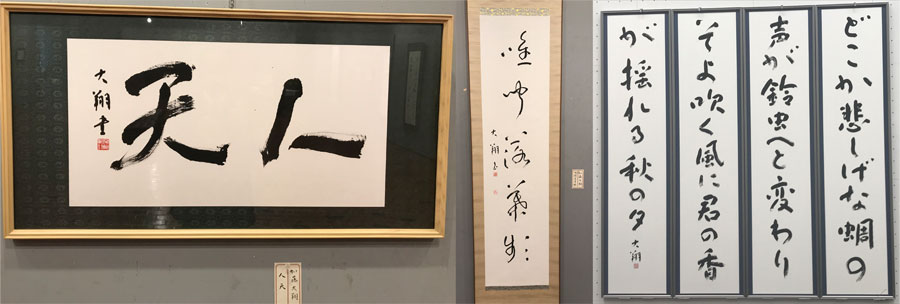 人天
大翔書
人天
唯聞落葉
大翔書
どこか悲しげな蜩の
声が鈴虫へと変わり
そよ吹く風に君の香
が揺れる秋の夕
大翔